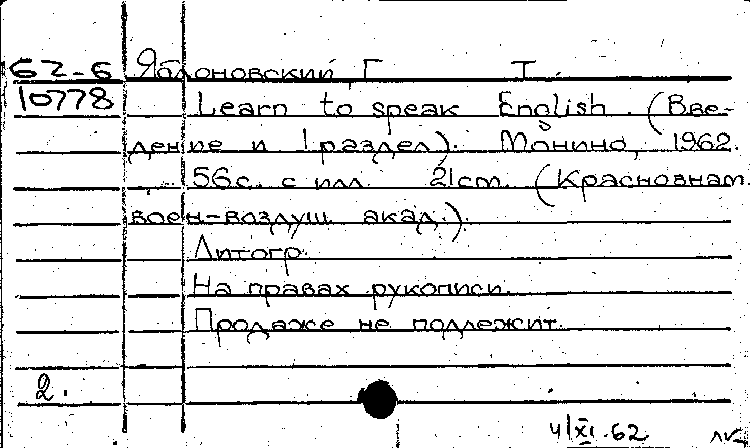 62-6 Яблоновский, Г. Т.
10778 Learn to speak English. (Вве-
дение и 1 раздел). Монино, 1962.
56с. с илл. 21cm. (Краснознам.
воен-воздуш. акад.).
Литогр.
На правах рукописи.
Продаже не подлежит.
2.
4/XI.62